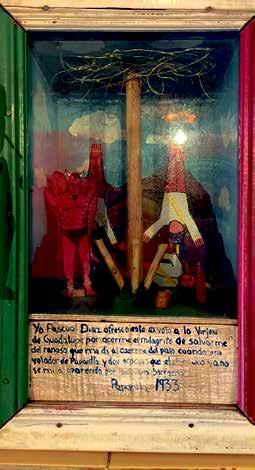 Yo Pascual Diaz ofresco este exvoto a la Virjen
de Guadalupe por acerme el milagrito de salvarme
del ranaso que me di al caerme del palo cuando era
volador de Papantla y doy gracias que el ya no
se me a aparecido por
Papantla 1933